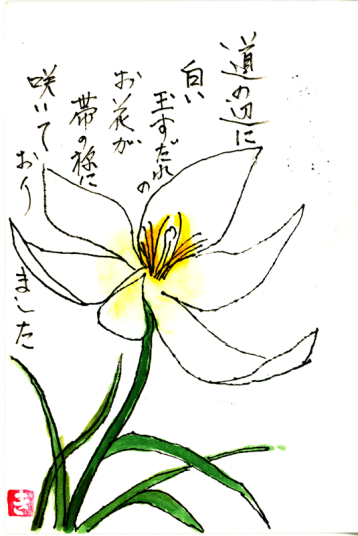 道の辺に
白い
玉すだれの
お花が
帯の様に
咲いて
おり
ました
き